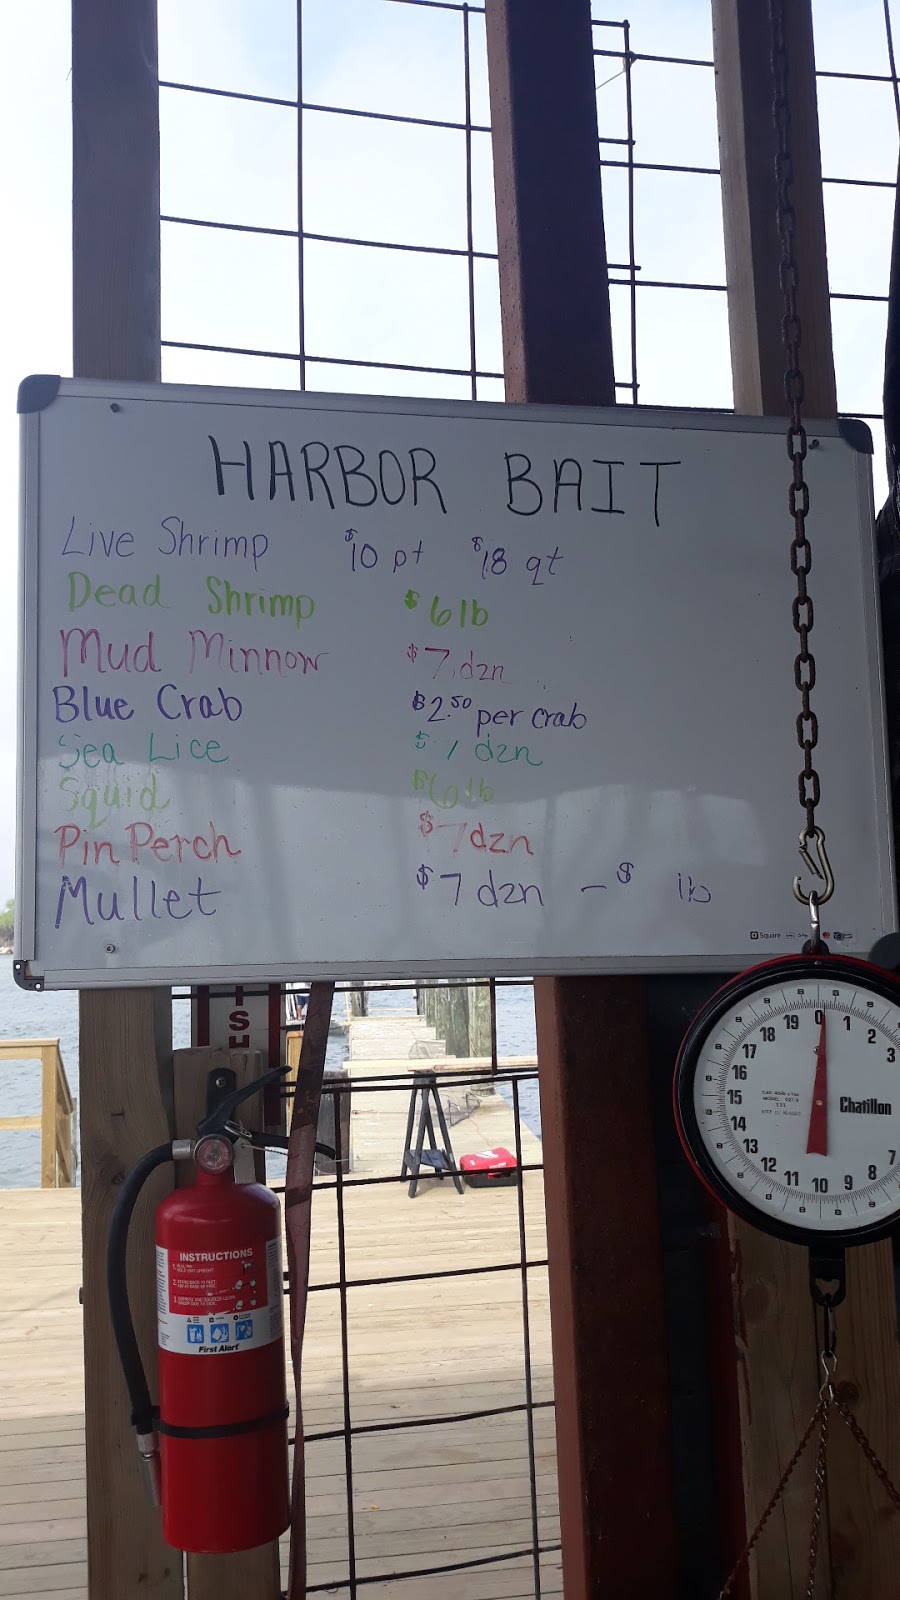 HARBOR BAIT
Live Shrimp $10 pt $18 qt
Dead Shrimp $6 lb
Mud Minnow $7 dzn
Blue Crab $2.50 per crab
Sea Lice $7 dzn
Squid $6 lb
Pin Perch $7 dzn
Mullet $7 dzn - $ lb
Square
IS
0 1 2 3 7 8 9 10 11 12 13 14 15 16 17 18 19
Chatillon
INSTRUCTIONS
First Alert